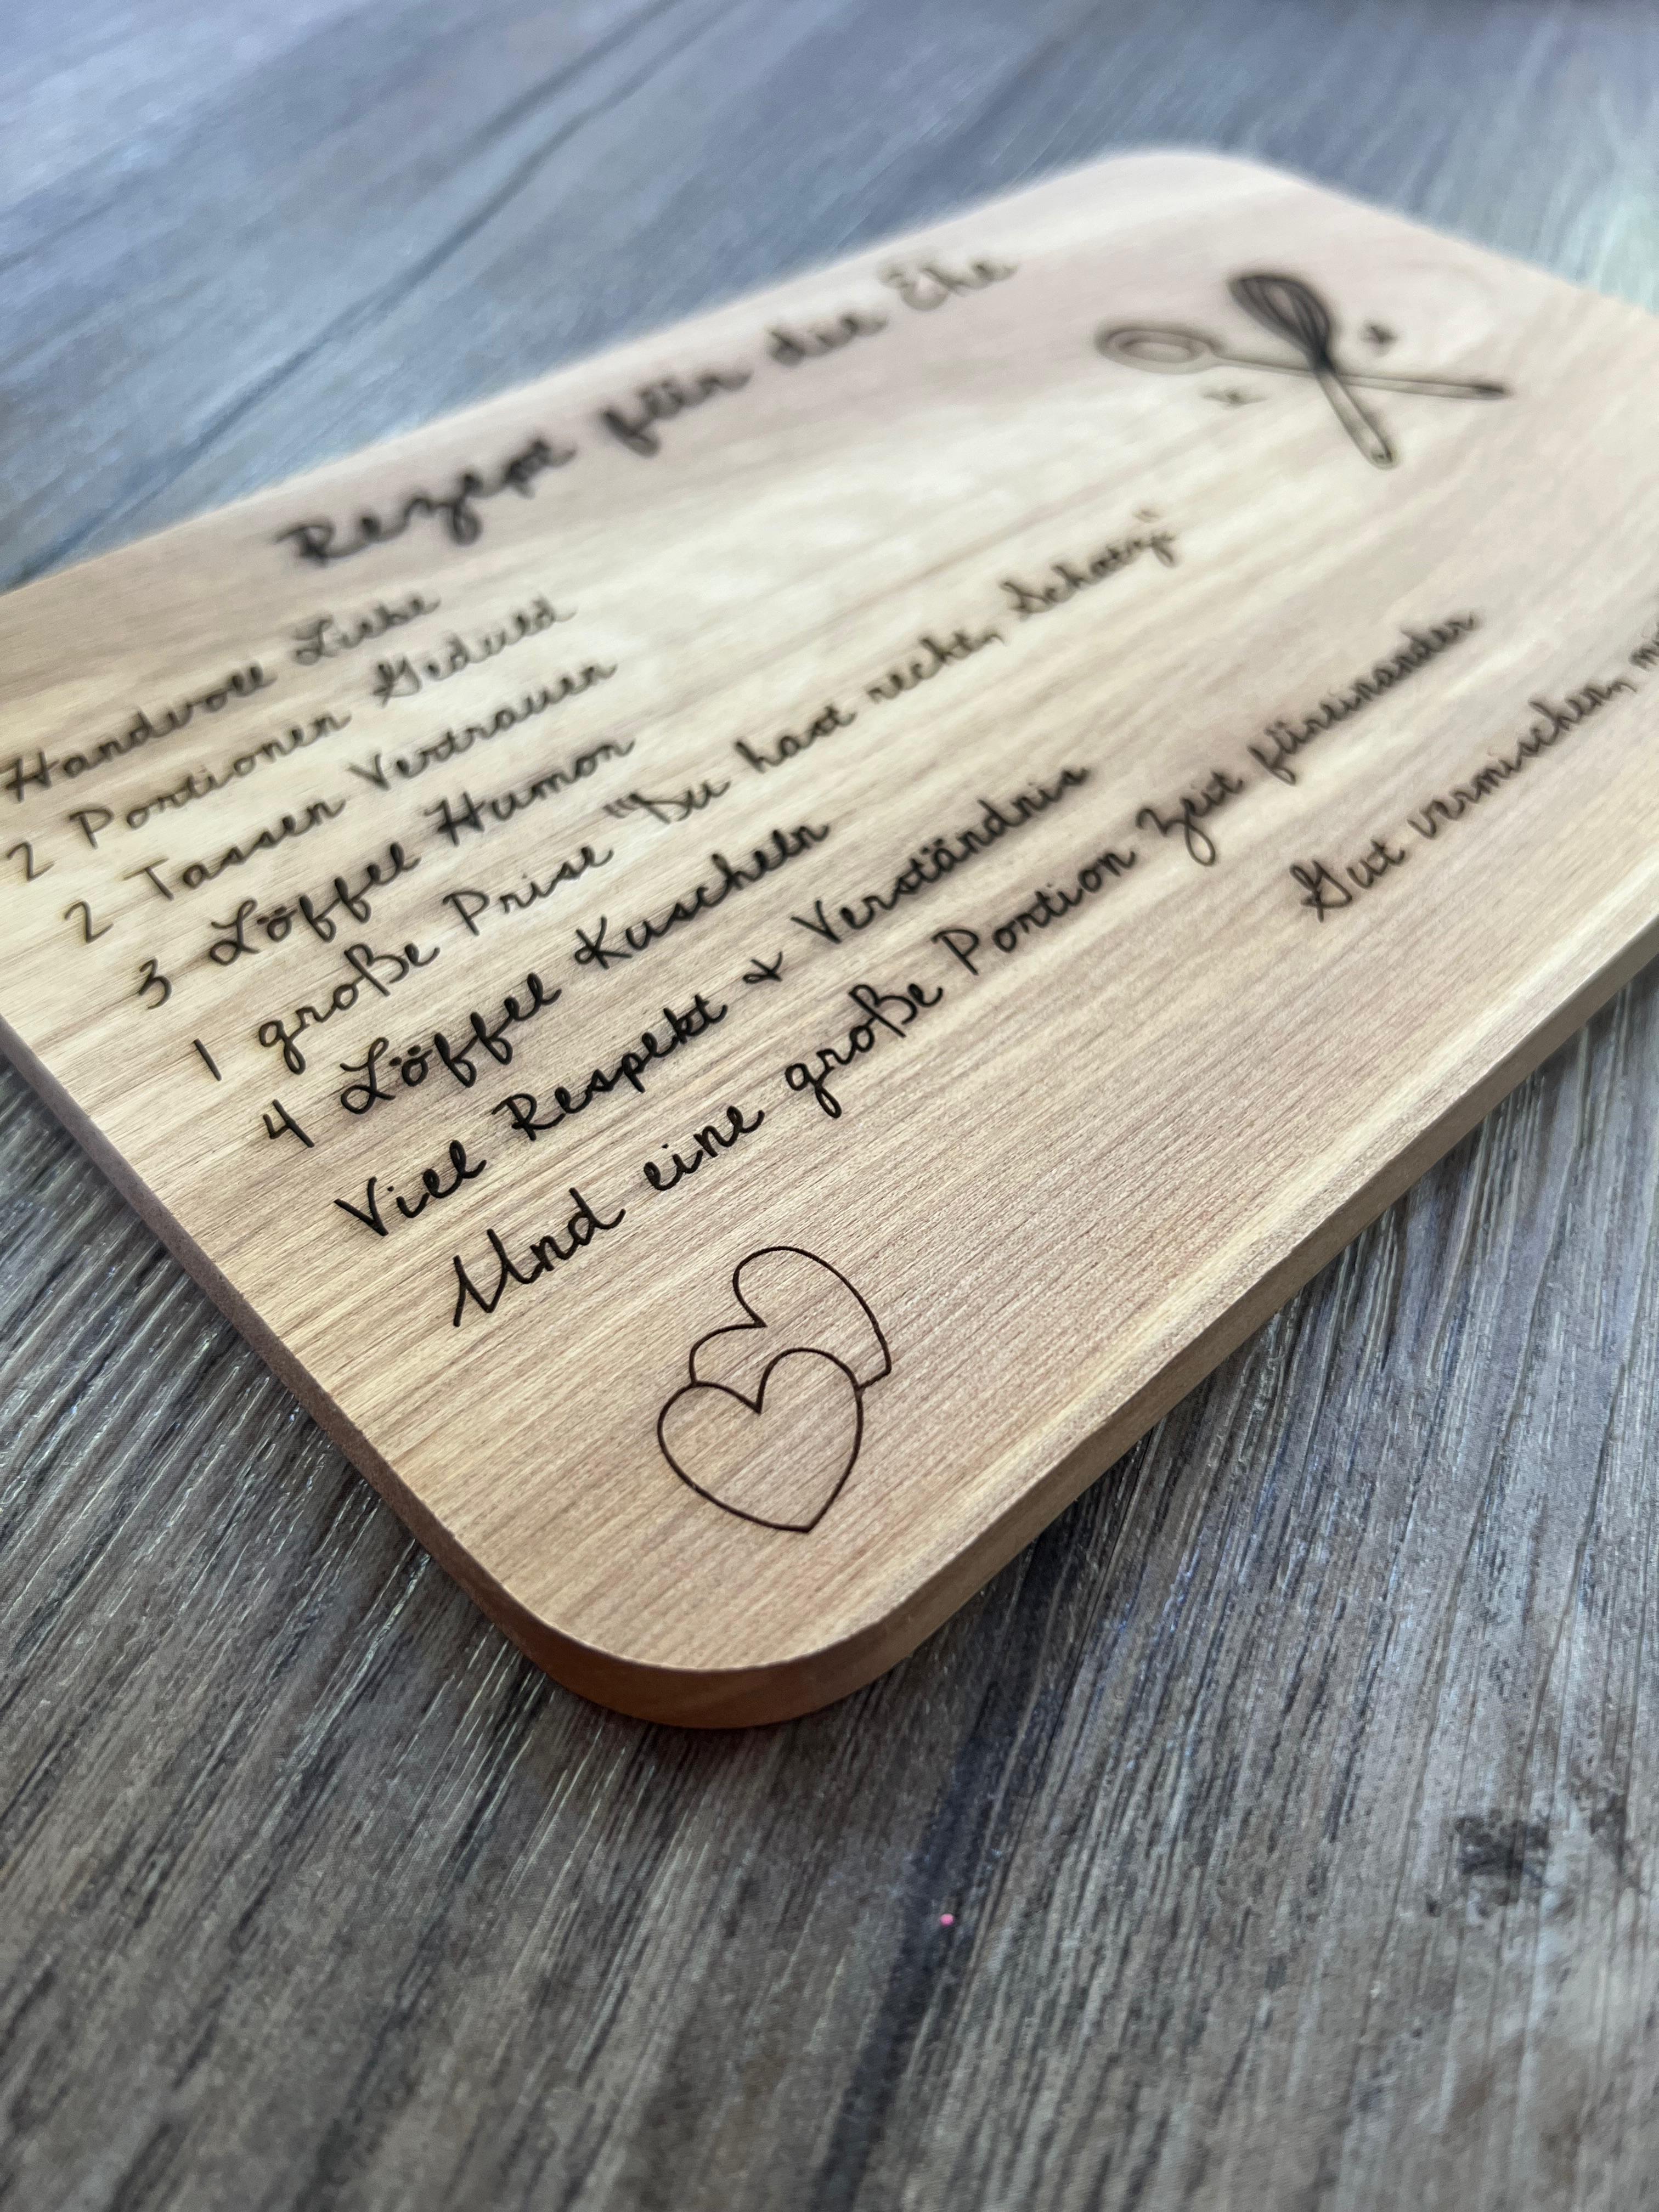 Rezept für die Ehe
Handvoll Liebe
2 Portionen Geduld
2 Tassen Vertrauen
3 Löffel Humor
1 große Prise "Du hast recht, Schatzi"
4 Löffel Kuscheln
Viel Respekt & Verständnis
Und eine große Portion Zeit füreinander
Gut vermischen,